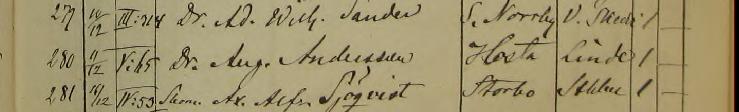 279 14/12 III:314 Dr. Ad. Wilh. Sander S. Norrby V. 1
280 11/12 V:65 Dr. Aug. Andersson Hosta Linde 1
281 /12 IV:53 Ax. Alfr. Sjöqvist Storbo 1